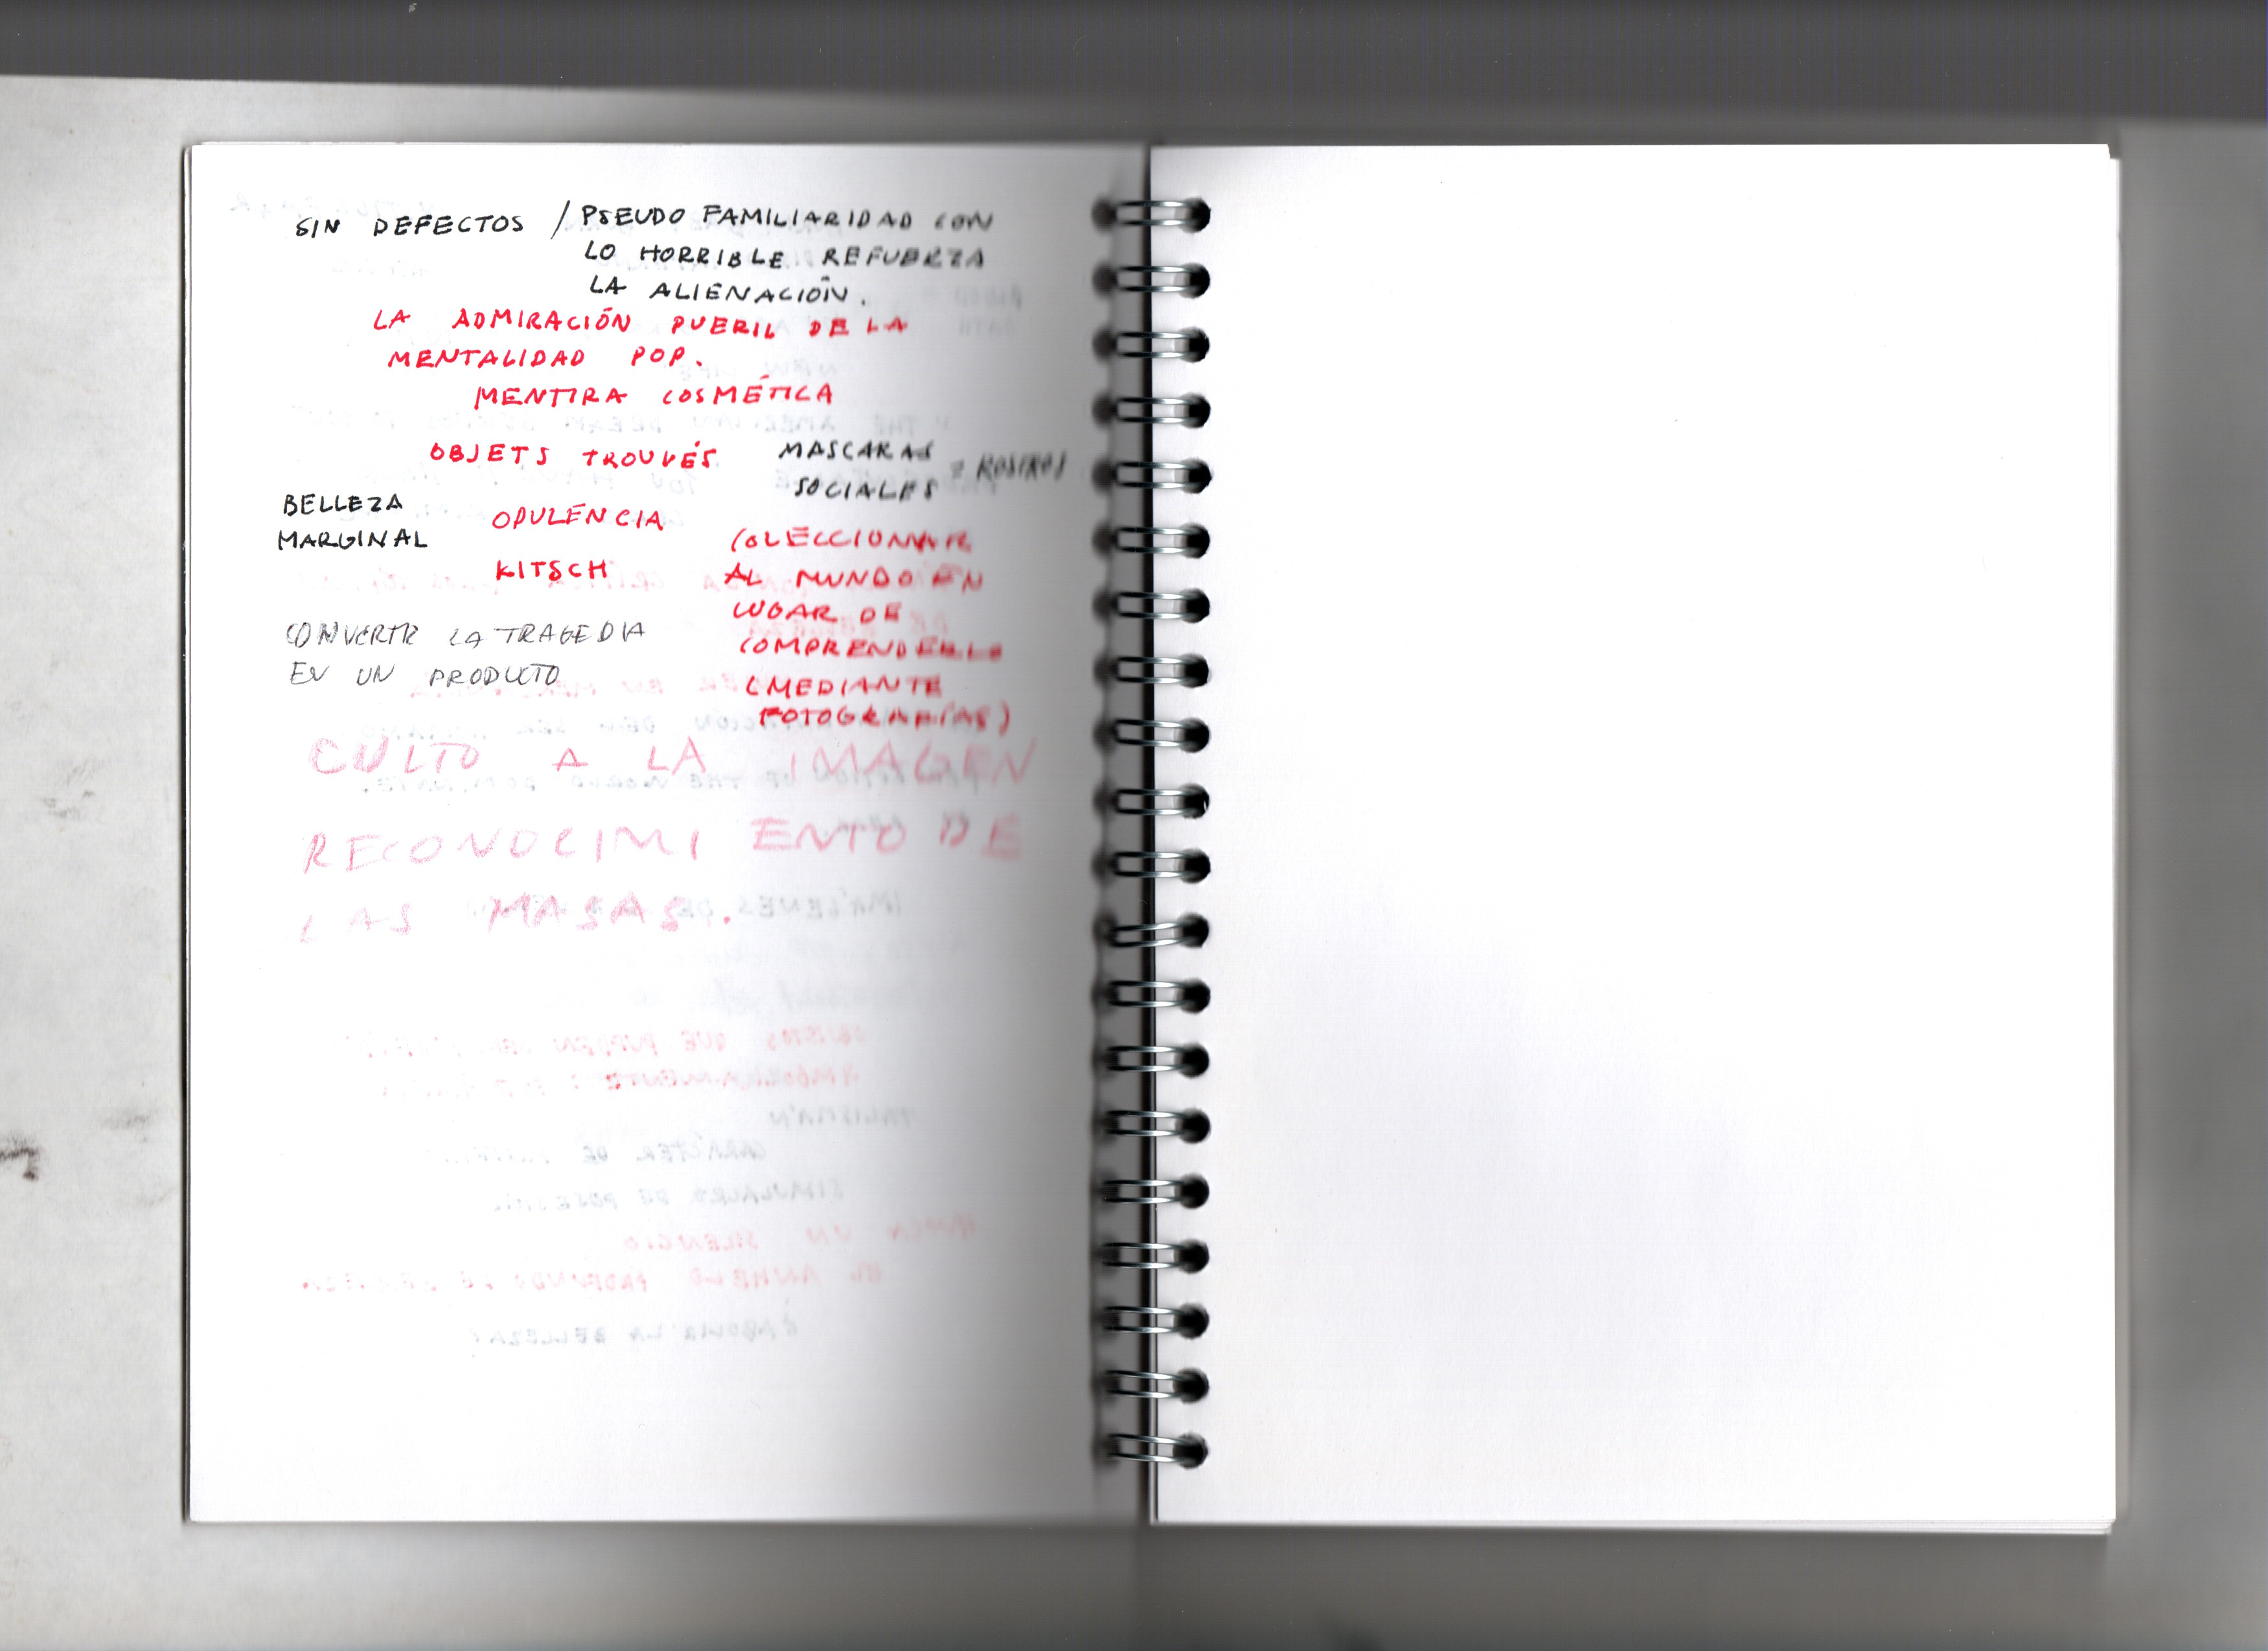 SIN DEFECTOS / PSEUDO FAMILIARIDAD CON
LO HORRIBLE REFUERZA
LA ALIENACIÓN.
LA ADMIRACIÓN PUERIL DE LA
MENTALIDAD POP.
MENTIRA COSMÉTICA
OBJETS TROUVÉS
MASCARAS
SOCIALES = ROSTROS
BELLEZA
MARGINAL
OPULENCIA
KITSCH
COLECCIONAR
AL MUNDO EN
LUGAR DE
COMPRENDERLO
(MEDIANTE
FOTOGRAFÍAS)
CONVERTIR LA TRAGEDIA
EN UN PRODUCTO
CULTO A LA IMAGEN
RECONOCIMIENTO DE
LAS MASAS.